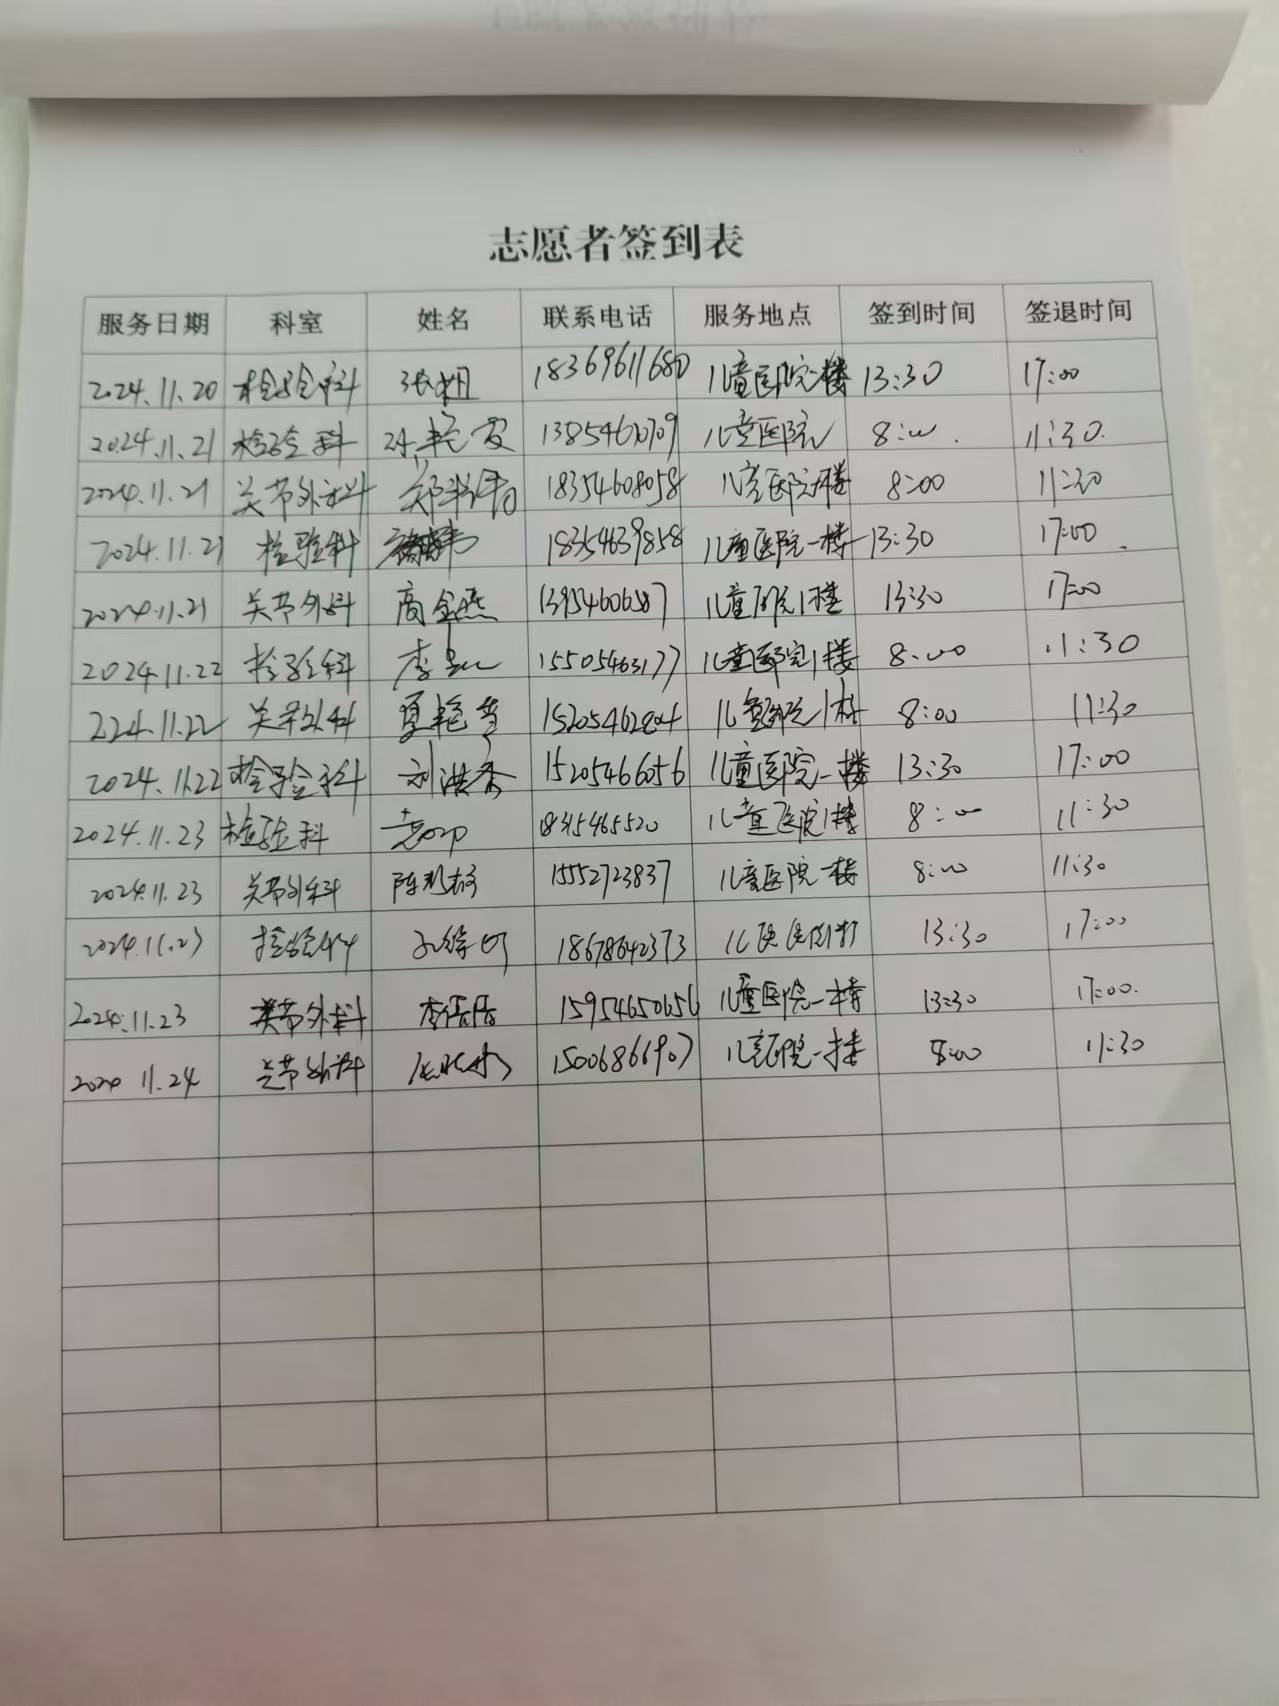 志愿者签到表
服务日期 科室 姓名 联系电话 服务地点 签到时间 签退时间
2024.11.20 检验科 18369611680 儿童医院一楼 13:30 17:00
2024.11.21 检验科 儿童医院 8:00 11:30
2024.11.21 关节外科 18354608058 儿童医院一楼 8:00 11:30
2024.11.21 检验科 18354639858 儿童医院一楼 13:30 17:00
2024.11.21 关节外科 高金燕 儿童医院1楼 13:30 17:00
2024.11.22 检验科 15505463177 儿童医院1楼 8:00 11:30
224.11.22 关节外科 夏艳雪 15205462804 8:00 11:30
2024.11.22 检验科 刘洪香 15205466056 儿童医院一楼 13:30 17:00
2024.11.23 检验科 18315465520 儿童医院1楼 8:00 11:30
2024.11.23 关节外科 15552723837 儿童医院一楼 8:00 11:30
2024.11.23 检验科 18678642373 13:30 17:00
2024.11.23 关节外科 15954650656 儿童医院一楼 13:30 17:00
2024 11.24 关节外科 儿童医院一楼 8:00 11:30